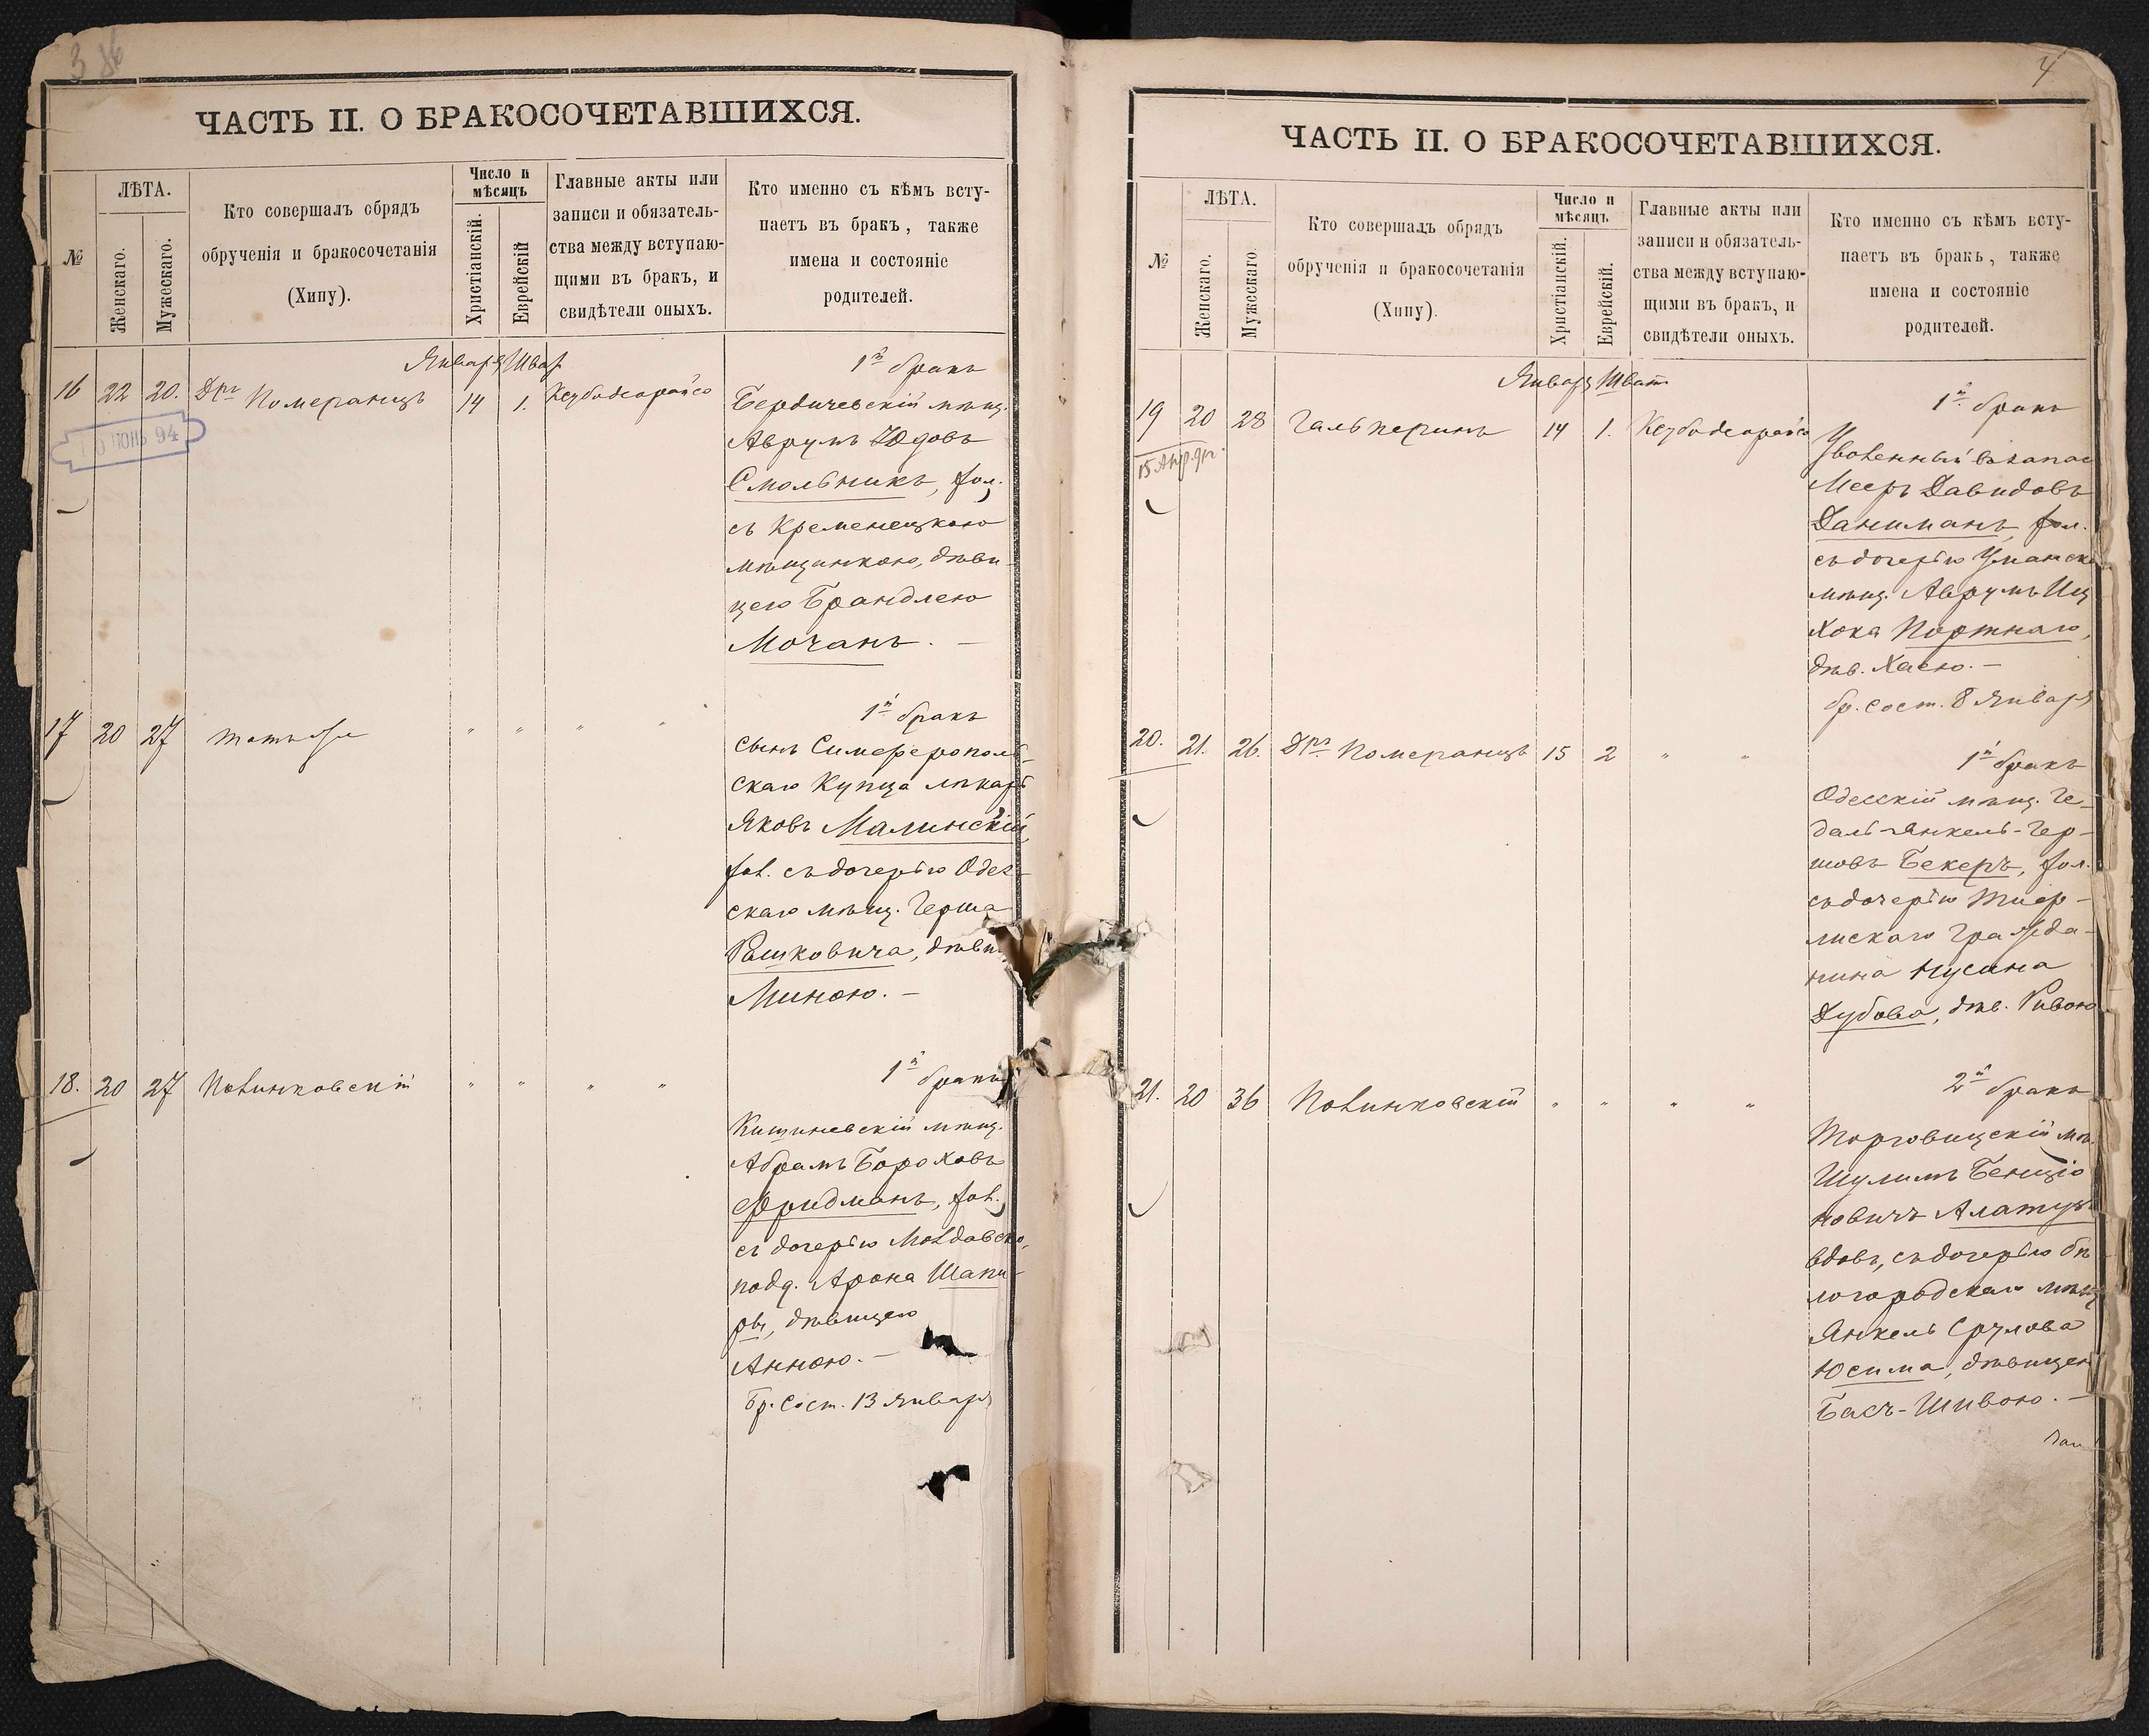 ЧАСТЬ II. О БРАКОСОЧЕТАВШИХСЯ.
№
ЛѢТА.
Женскаго.
Мужескаго.
Кто совершалъ обрядъ
обрученія и бракосочетанія
(Хипу).
Число и
мѣсяцъ
Христіанскій.
Еврейскій
Главные акты или
записи и обязатель-
ства между вступаю-
щими въ бракъ, и
свидѣтели оныхъ.
Кто именно съ кѣмъ всту-
паетъ въ бракъ, также
имена и состояніе
родителей.
Января
16 22 20. Помераницъ 14 1.
ІЮНЬ 94
1й бракъ
Бердичевскій мѣщ.
Аврумъ Юдовъ
Смольникъ, хол.
съ Кременецкою
мѣщанкою, дѣви-
цею Брандлею
Мочанъ. —
17 20 27 " " " "
1й бракъ
сынъ Симферополь-
скаго Купца лѣкарь
Яковъ Малинскій,
хол. съ дочерью Одес-
скаго мѣщ. Герша
Рашковича, дѣвиц.
Миною. —
18. 20 27 Полинковскій " " " "
1й бракъ
Кишиневскій мѣщ.
Абрамъ Бороховъ
Фридманъ, хол.
съ дочерью Молдавско.
подд. Арона Шапи-
ры, дѣвицею
Анною. —
Бр. сост. 13 Января
4
ЧАСТЬ II. О БРАКОСОЧЕТАВШИХСЯ.
№
ЛѢТА.
Женскаго.
Мужескаго.
Кто совершалъ обрядъ
обрученія и бракосочетанія
(Хипу).
Число и
мѣсяцъ
Христіанскій.
Еврейскій.
Главные акты или
записи и обязатель-
ства между вступаю-
щими въ бракъ, и
свидѣтели оныхъ.
Кто именно съ кѣмъ всту-
паетъ въ бракъ, также
имена и состояніе
родителей.
Января Шватъ
19 20 28 Гальперинъ 14 1.
1й бракъ
Уволенный въ запас
Мееръ Давидовъ
Даниманъ, хол.
съ дочерью Уманска
мѣщ. Аврумъ Иц
хока Портнаго,
дѣв. Хаею. —
бр. сост. 8 Января
20. 21. 26. Помераницъ 15 2 " "
1й бракъ
Одесскій мѣщ. Ге-
даль-Янкель-Гер-
шовъ Бекеръ, хол.
съ дочерью Тиер-
лискаго Гражда-
нина Нусина
Дубова, дѣв. Ривою
21. 20 36 Полинковскій " " " "
2й бракъ
Торговицскій мѣ.
Шулимъ Бенціо
новичъ
вдовъ, съ дочерью бѣ
логородскаго мѣщ
Янкель Срулова
Юсима, дѣвицею
Бась-Шивою. —